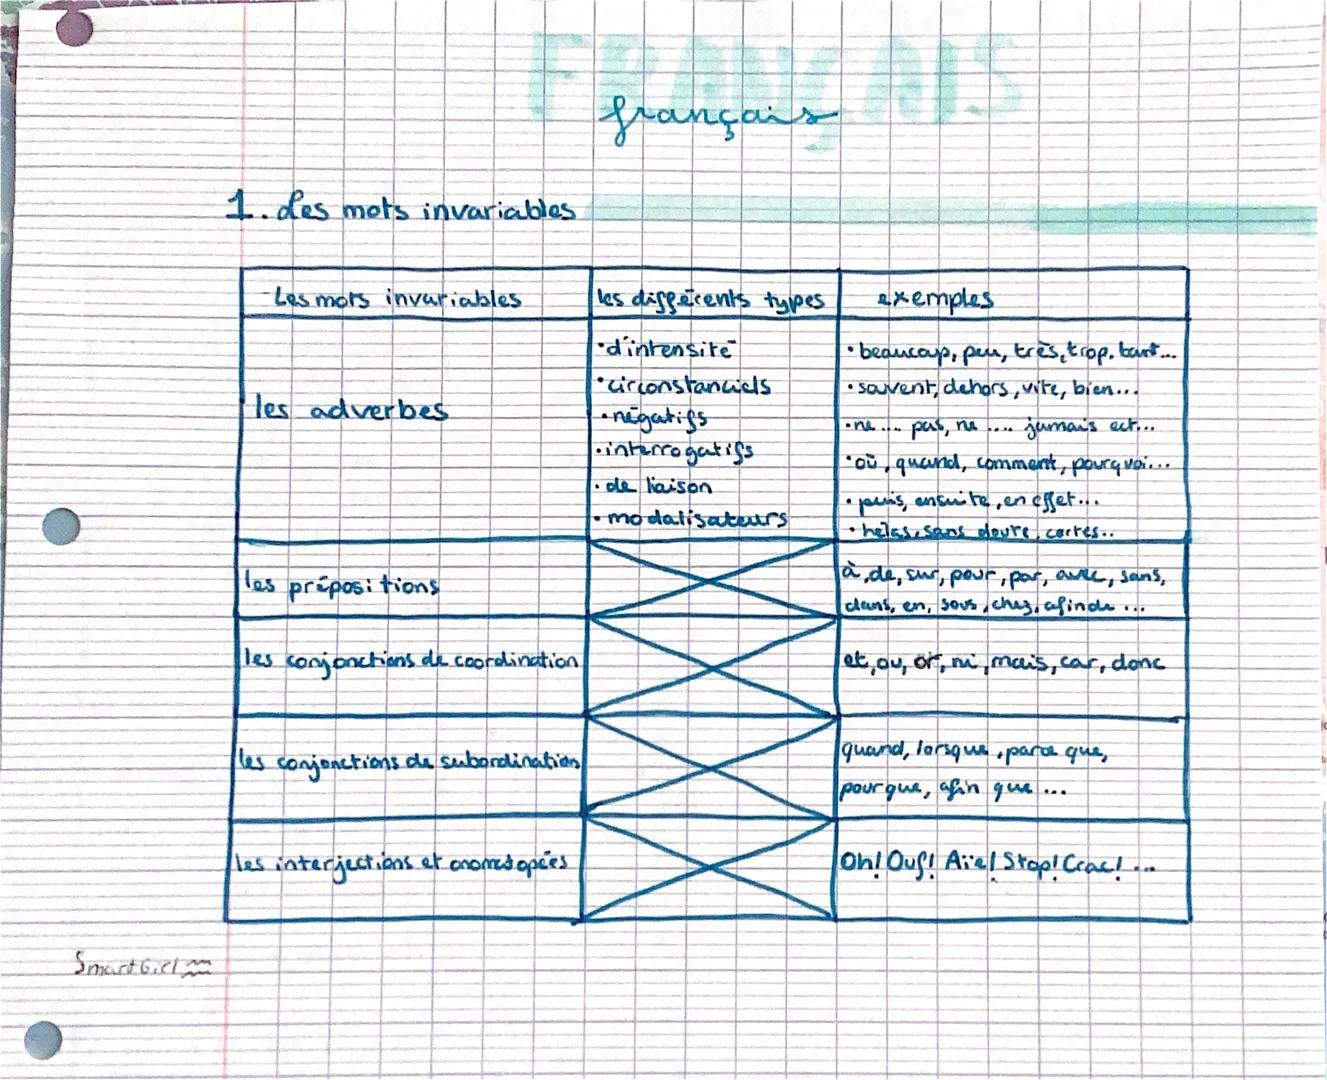 FRANÇAIS
français
1. Les mots invariables
Les mots invariables
les différents types
exemples
les adverbes
• d'intensité
• circonstanciels
• négatifs
• interrogatifs
• de liaison
• modalisateurs
• beaucoup, peu, très, trop, tant...
• souvent, dehors, vite, bien...
• ne .... pas, ne .... jamais ect...
• où, quand, comment, pourquoi...
• puis, ensuite, en effet...
• hélas, sans doute, certes..
les prépositions
à, de, sur, pour, par, avec, sans,
dans, en, sous, chez, afin de ...
les conjonctions de coordination
et, ou, or, ni, mais, car, donc
les conjonctions de subordination
quand, lorsque, parce que,
pour que, afin que ...
les interjections et onomatopées
Oh! Ouf! Aïe! Stop! Crac! ...
SmartGirl